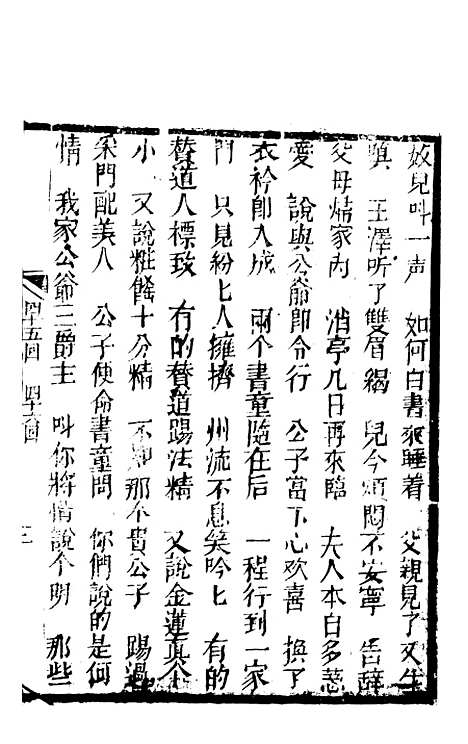 奴兒叫一声　如何白書來睡着　父親見了又生
嗔　王澤听了雙眉縐　兒今煩悶不安寧　告辞
父母㷔家內　消亭几日再來臨　夫人本白多惹
愛　說與公爺即令行　公子當下心欢喜　換了
衣衿即入城　兩个書童隨在后　一程行到一家
門　只見紛匕人擁擠　州流不息笑吟匕　有的
賛道人標致　有的賛道踢法精　又說金蓮真个
小　又說粧餙十分精　不知那个貴公子　踢過
采門配美人　公子便命書童問　你們說的是何
情　我家公爺三爵主　叫你將情說个明　那些
四十五回　四十六回　三